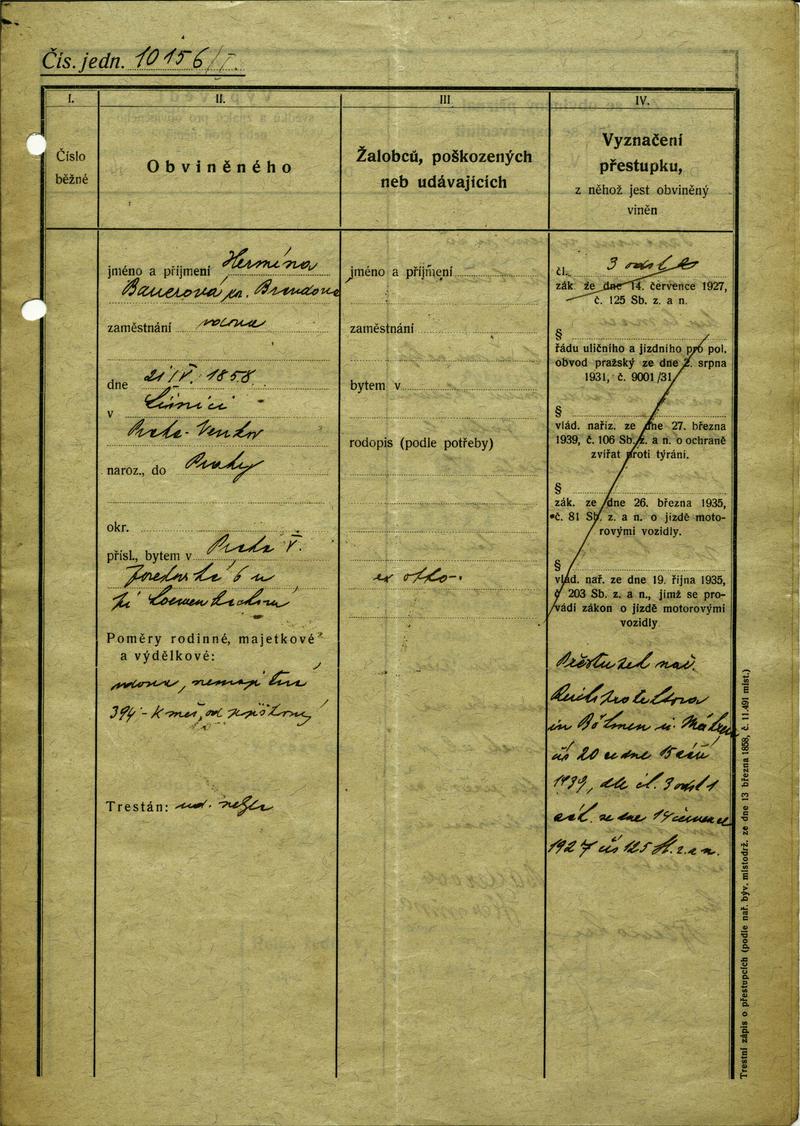 Čís. jedn. 10156/I.
I.
Číslo
běžné
II.
Obviněného
jméno a příjmení Hermína
Bauerová
zaměstnání
dne 21/IV. 1858
v
naroz., do Prahy
okr.
přísl., bytem v Praha V.
6
Poměry rodinné, majetkové
a výdělkové:
vdova, nemajetná
394 - K
Trestán:
III.
Žalobců, poškozených
neb udávajících
jméno a příjmení
zaměstnání
bytem v
rodopis (podle potřeby)
IV.
Vyznačení
přestupku,
z něhož jest obviněný
viněn
čl. 3 odst
zák. ze dne 14. července 1927,
č. 125 Sb. z. a n.
§
řádu uličního a jízdního pro pol.
obvod pražský ze dne 2. srpna
1931, č. 9001/31.
§
vlád. naříz. ze dne 27. března
1939, č. 106 Sb. z. a n. o ochraně
zvířat proti týrání.
§
zák. ze dne 26. března 1935,
č. 81 Sb. z. a n. o jízdě moto-
rovými vozidly.
§
vlád. nař. ze dne 19. října 1935,
č. 203 Sb. z. a n., jímž se pro-
vádí zákon o jízdě motorovými
vozidly.
Přestupek nař.
Reichsprotektora
in Böhmen u. Mähren
čís 20 ze dne 15 září
1939, dle čl. 3 odst 1
zák. ze dne 14 července
1927 čís 125 Sb. z. a n.
Trestní zápis o přestupcích (podle nař. býv. místodrž. ze dne 13 března 1858, č. 11.491 míst.)